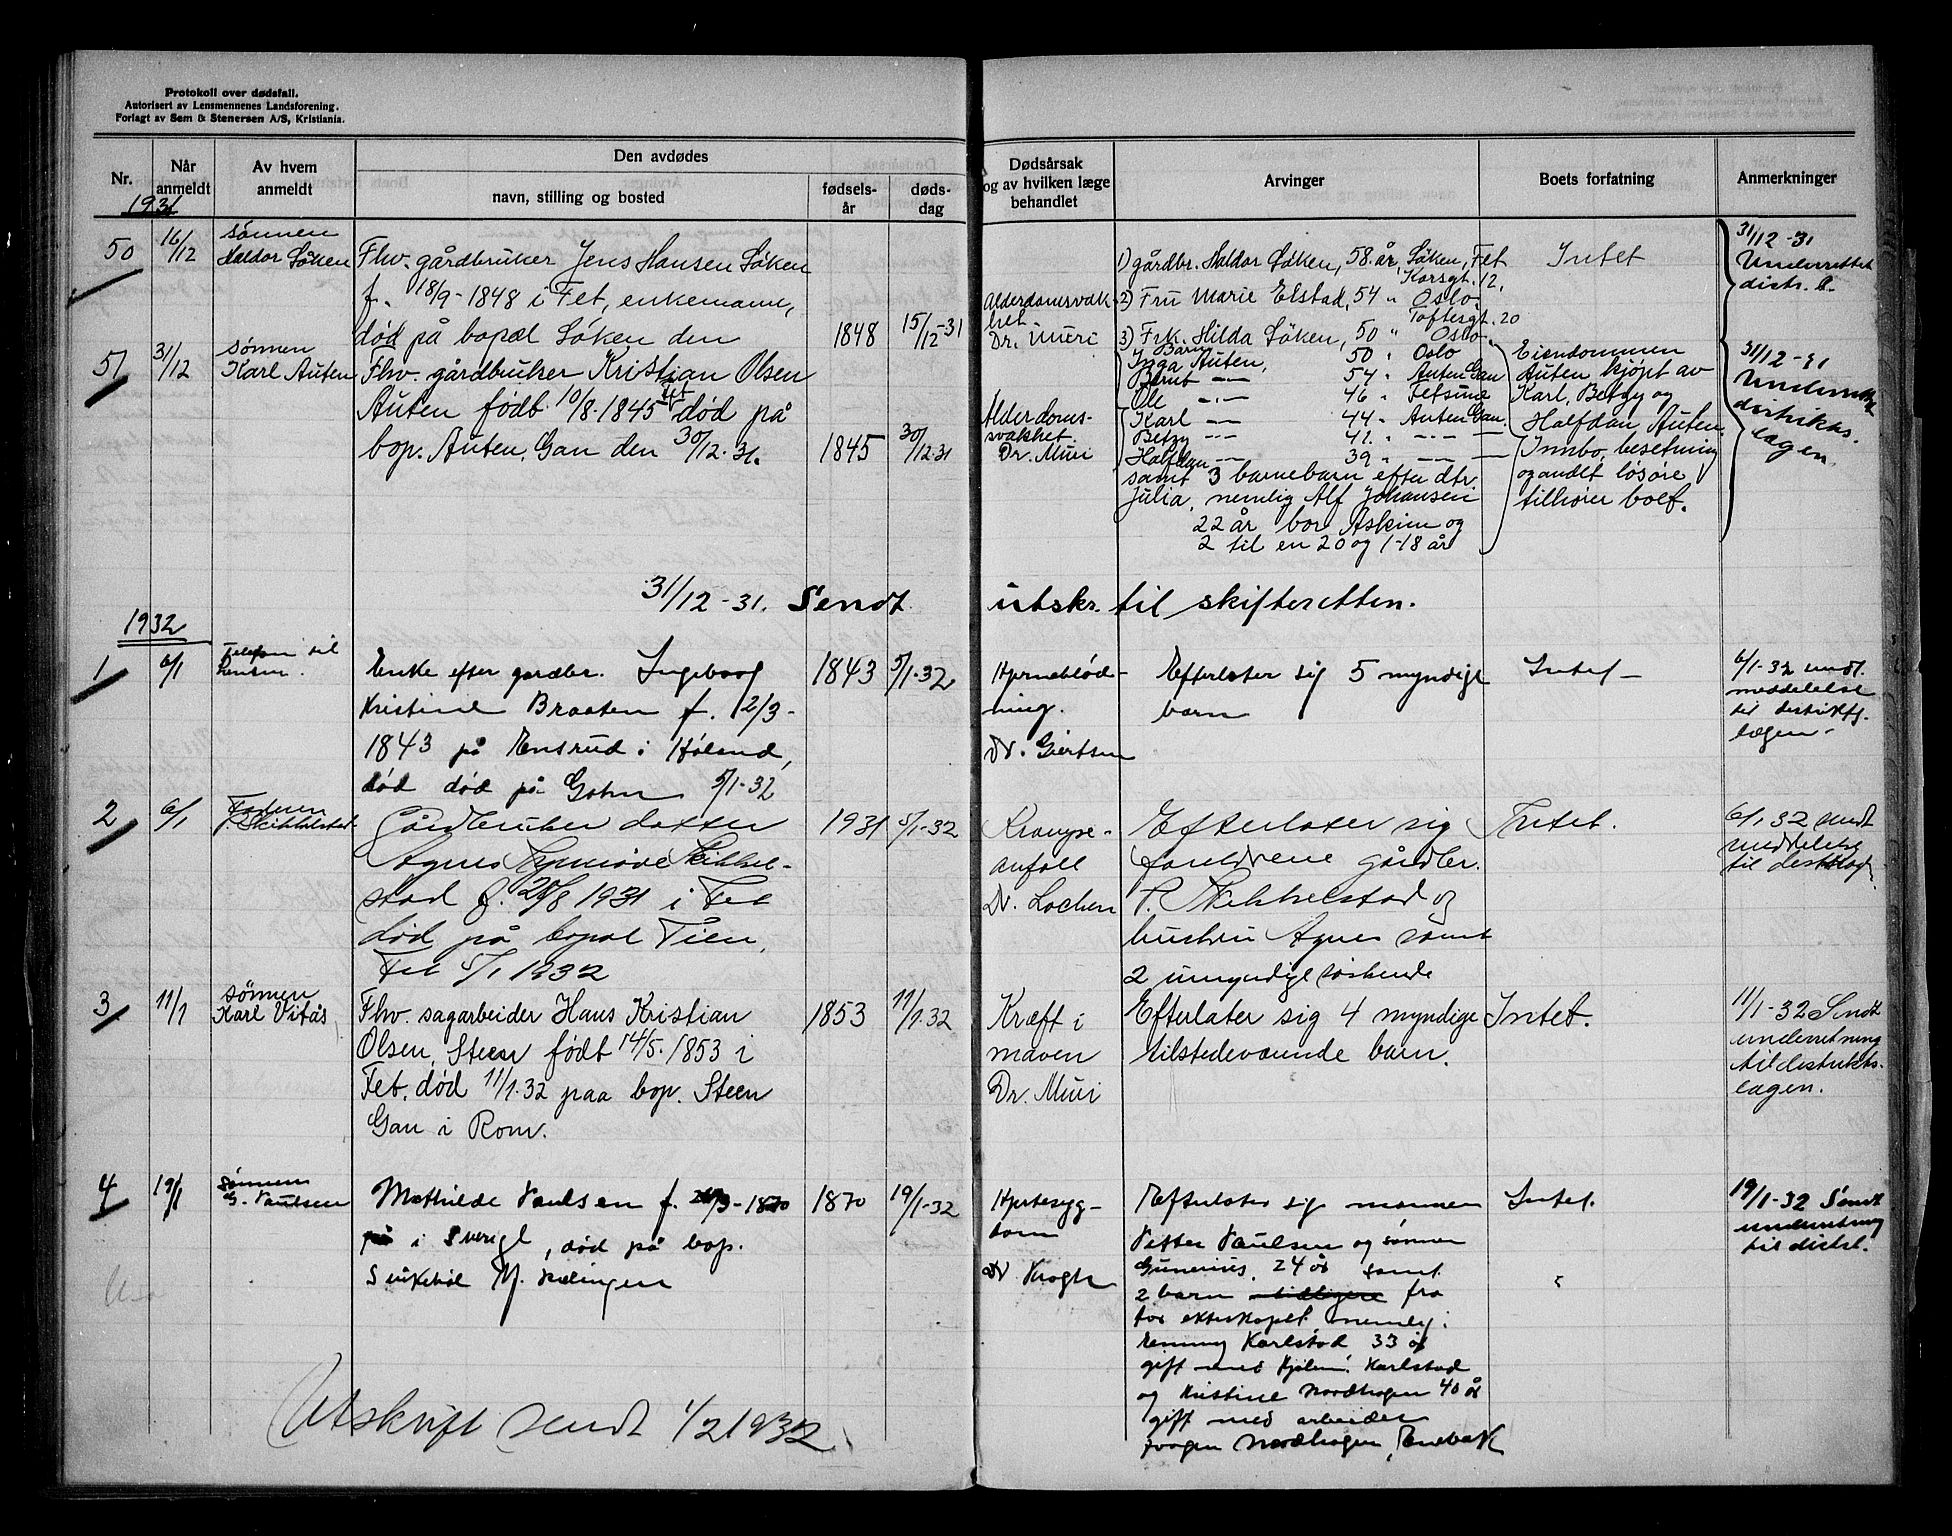 Protokoll over dødsfall.
Autorisert av Lensmennenes Landsforening.
Forlagt av Sem & Stenersen A/S, Kristiania.
Nr.
Når anmeldt
Av hvem anmeldt
Den avdødes
navn, stilling og bosted
fødsels-år
døds-dag
Dødsårsak og av hvilken læge behandlet
Arvinger
Boets forfatning
Anmerkninger
1931
50
16/12
sønnen
Haldor Löken
Fhv. gårdbruker Jens Hansen Löken
f. 18/9-1848 i Fet, enkemann,
død på bopæl Löken den
1848
15/12-31
Alderdomsvak-
het
Dr. Muri
1) gårdbr. Haldor Löken, 58 år, Löken, Fet
Korsgt. 12,
2) Fru Marie Elstad, 54 " Oslo.
Toftesgt. 20
3) Frk. Hilda Löken, 50 " Oslo.
Intet
31/12-31
Underrettet
distr. l.
51
31/12
sønnen
Karl Auten
Fhv. gårdbruker Kristian Olsen
Auten født 10/8-1845 Fet død på
bop. Auten, Gan den 30/12.31.
1845
30/12.31
Alderdoms-
svakhet.
Dr. Muri
Barn
Inga Auten, 50 " Oslo
Bernt -"- 54 " Auten Gan
Ole -"- 46 " Fetsund
Karl -"- 44 " Auten Gan.
Betzy -"- 41. -"- -"-
Halfdan -"- 39 " -"- -"-
samt 3 barnebarn efter dtr.
Julia, nemlig Alf Johansen
22 år bor Askim og
2 til en 20 og 1-18 år
Eiendommen
Auten kjøpt av
Karl, Betzy og
Halfdan Auten.
Innbo, besetning
og andet løsøre
tilhører boet.
31/12-31
distrikts-
lægen.
31/12-31. Sendt utskr. til skifteretten.
1932
1
6/1
Telefon til
Lensm.
Enke efter gardbr. Ingeborg
Kristine Braaten f. 12/3-
1843 på Ensrud i Høland,
død død på 5/1-32
1843
5/1-32
Hjerneblød-
ning.
Dr. Giertsen
Efterlater sig 5 myndige
barn
Intet -
6/1-32 sendt
meddelelse
til distrikts-
lægen-
2
6/1
Faderen
P. Skibbelstad.
Gårdbruker datter
Agnes Synnøve Skibbel-
stad f. 28/8 1931 i Fet
død på bopæl Tien,
Fet 5/1 1932
1931
5/1-32
Krampe-
anfall
Dr. Lochen
Efterlater sig
foreldrene gårdbr.
P. Skibbelstad og
hustru Agnes samt
2 umyndige søskende
Intet.
6/1 32 sendt
meddelelse
til distrlæg.
3
11/1
sønnen
Karl Vitås
Fhv. sagarbeider Hans Kristian
Olsen, Steen født 14/5. 1853 i
Fet, død 11/1.32 paa bop. Steen
Gan i Rom.
1853
11/1.32
Kræft i
maven
Dr. Muri
Efterlater sig 4 myndige
tilstedeværende barn.
Intet.
11/1-32 Sendt
underretning
til distrikts-
lægen.
4
19/1
Sønnen
G. Paulsen
Mathilde Paulsen f. 26/3-1870
i Sverige, død på bop.
1870
19/1-32
Hjertesyg-
dom
Dr. Krogh
Efterlater sig mannen
Petter Paulsen og sønnen
Gunerius, 24 år samt
2 barn tidligere fra
før ekteskapet nemlig:
Karlstad 33 år
gift med Karlstad
og Kristine Nordhagen 40 år
gift med arbeider
Nordhagen, Enebakk
Intet.
19/1-32 Sendt
underretning
til distr.l.
Utskrift sendt 1/2 1932